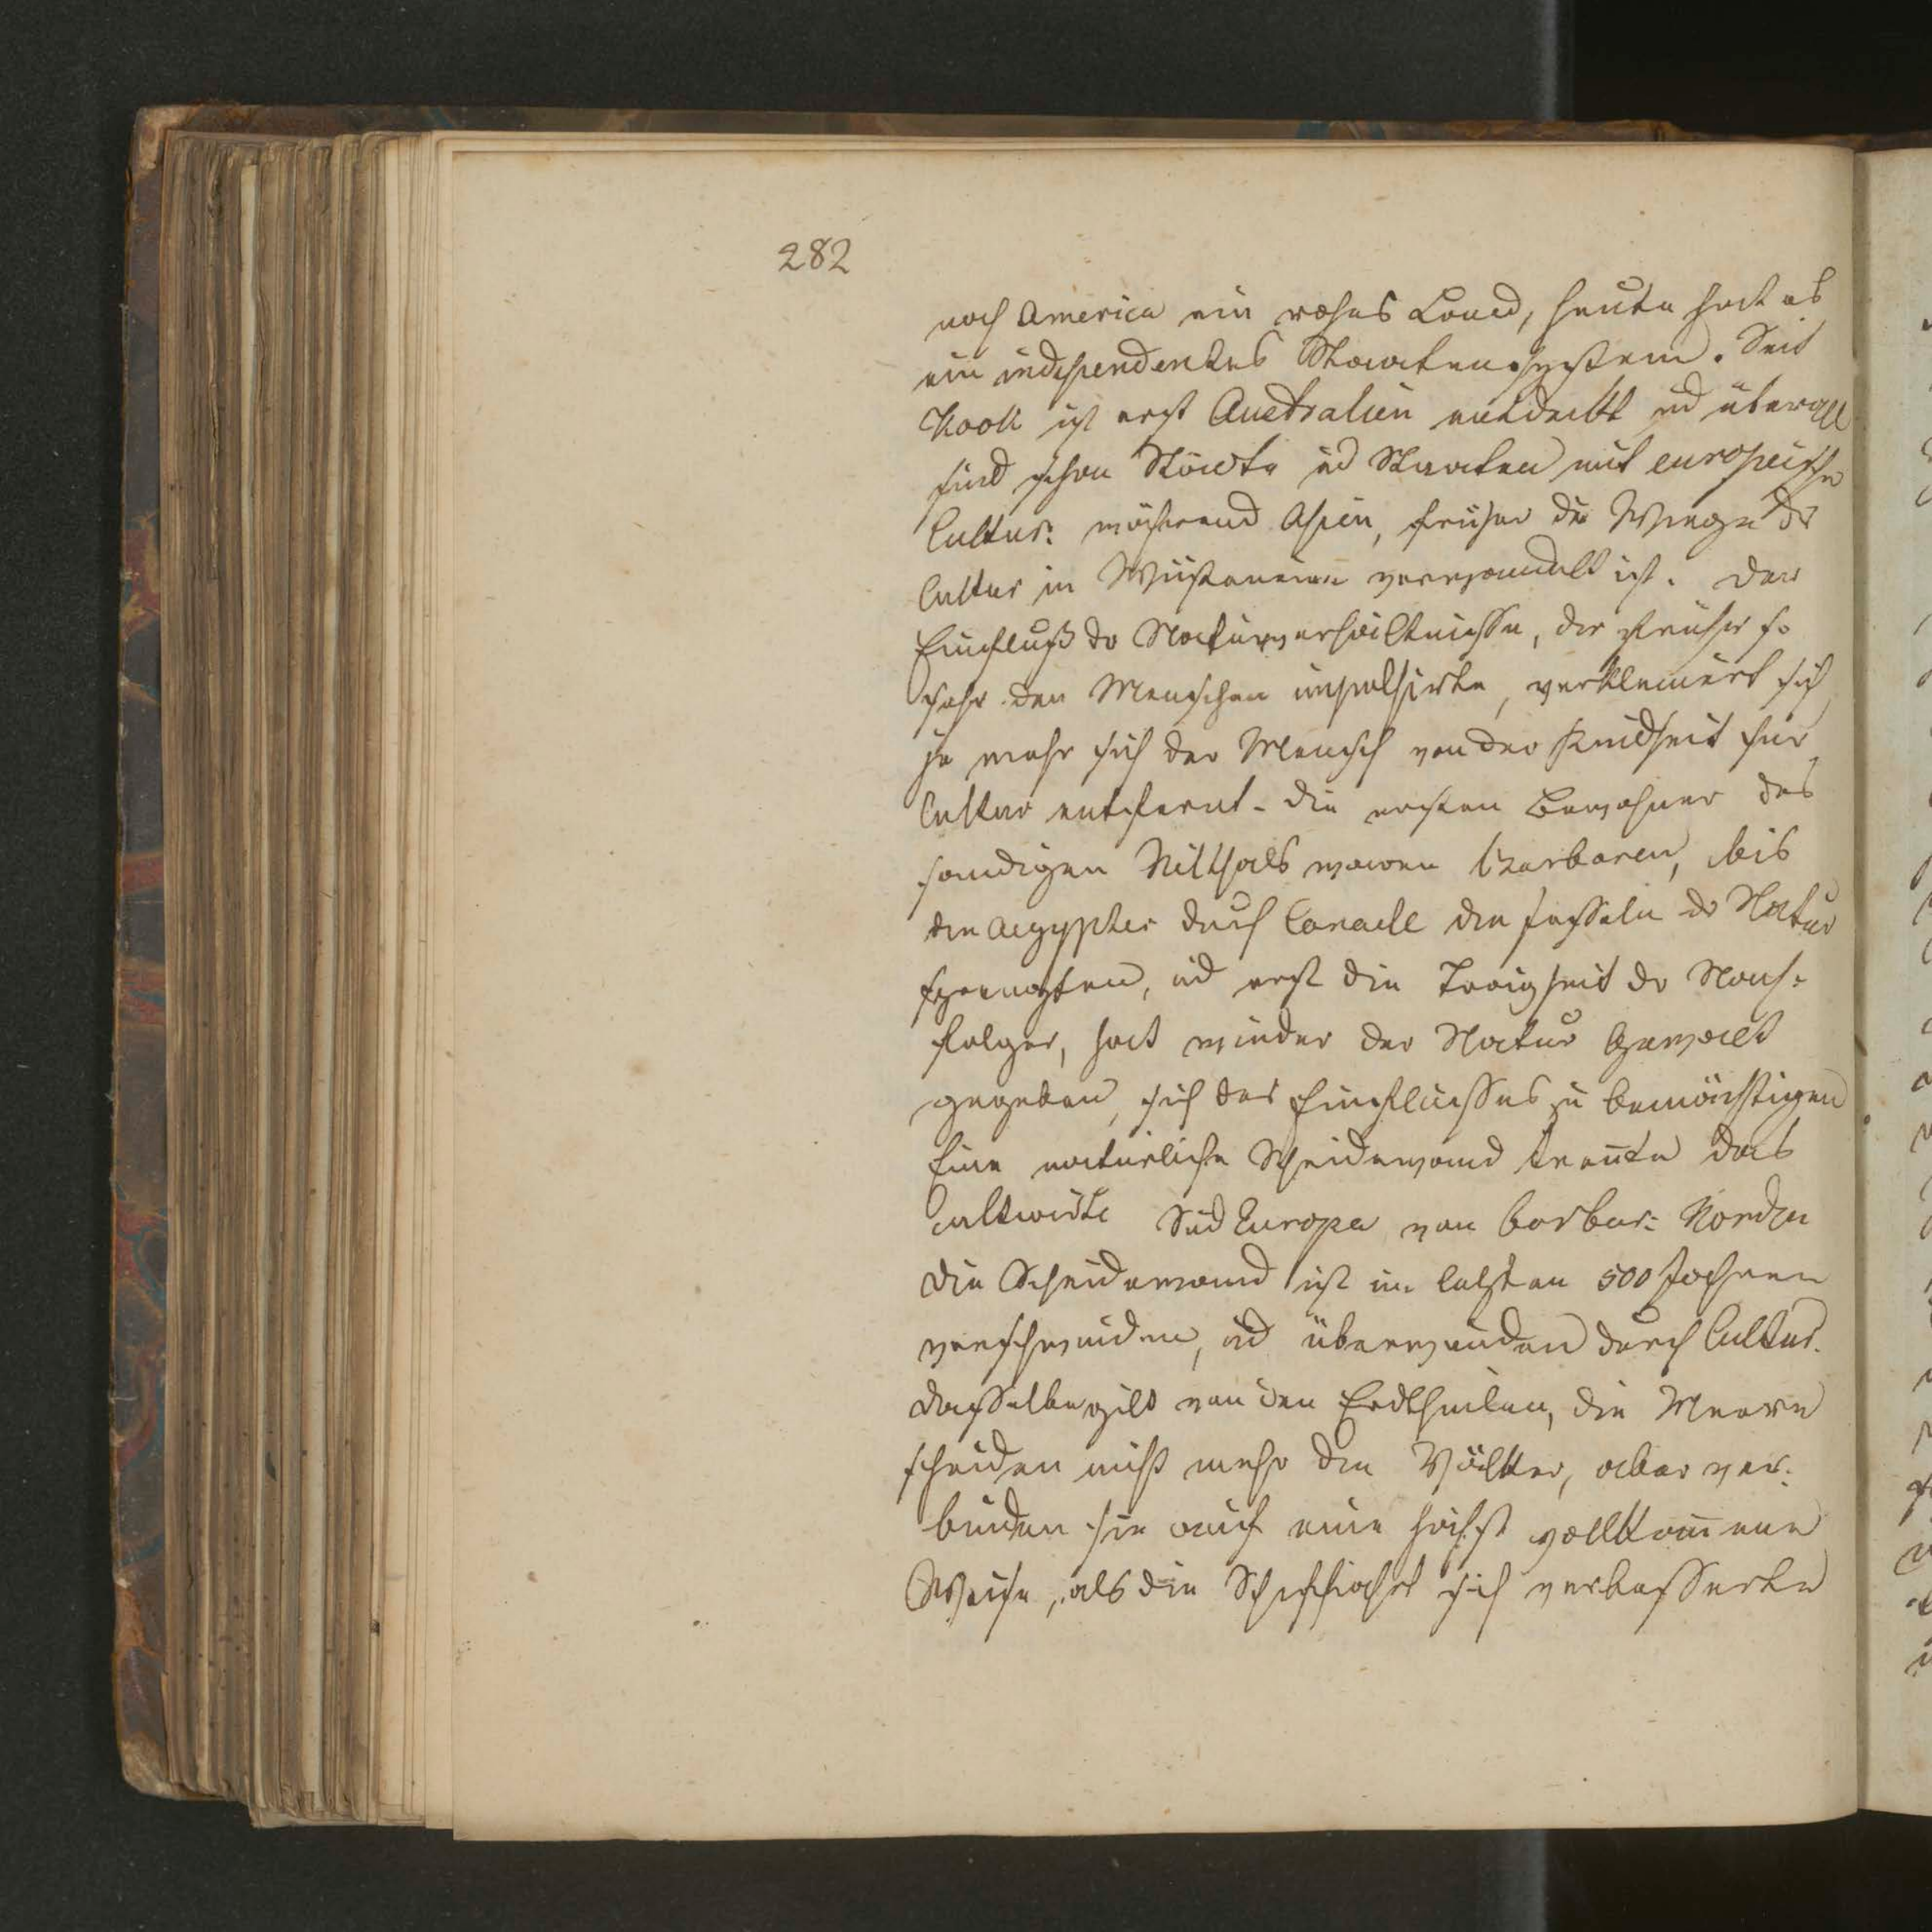 282
noch America ein rohes Land, heute hat es
ein independentes Staatensystem. Seit
Kook ist erst Australien entdeckt ud überall
sind schon Städte ud Staaten mit europeische
Cultur: während Asien, früher die Wiege dr
Cultur in Wüsteneien verwandelt ist. Der
Einfluß dr Naturverhältnisse, der früher so
sehr den Menschen impulsirte, verkleinert sich
je mehr sich der Mensch von der Kindheit für
Cultur entfernt. Die ersten Bewohner des
sandigen Nilthals waren Barbaren, bis
die Aegypter durch Canaele die Fesseln dr Natur
sprengten, ud erst die Trägheit dr Nach-
folger, hat wieder der Natur Gewalt
gegeben, sich des Einflusses zu bemächtigen
Eine natürliche Scheidewand trennte das
cultivirte Süd Europa von barbar: Norden
Die Scheidewand ist im letzten 500 Jahren
verschwunden, ud überwunden durch Cultur.
Dasselbe gilt von den Erdtheilen, die Meere
scheiden nicht mehr die Völker, aber ver-
binden sie auf eine höchst vollkommene
Weise, als die Schiffahrt sich verbesserte